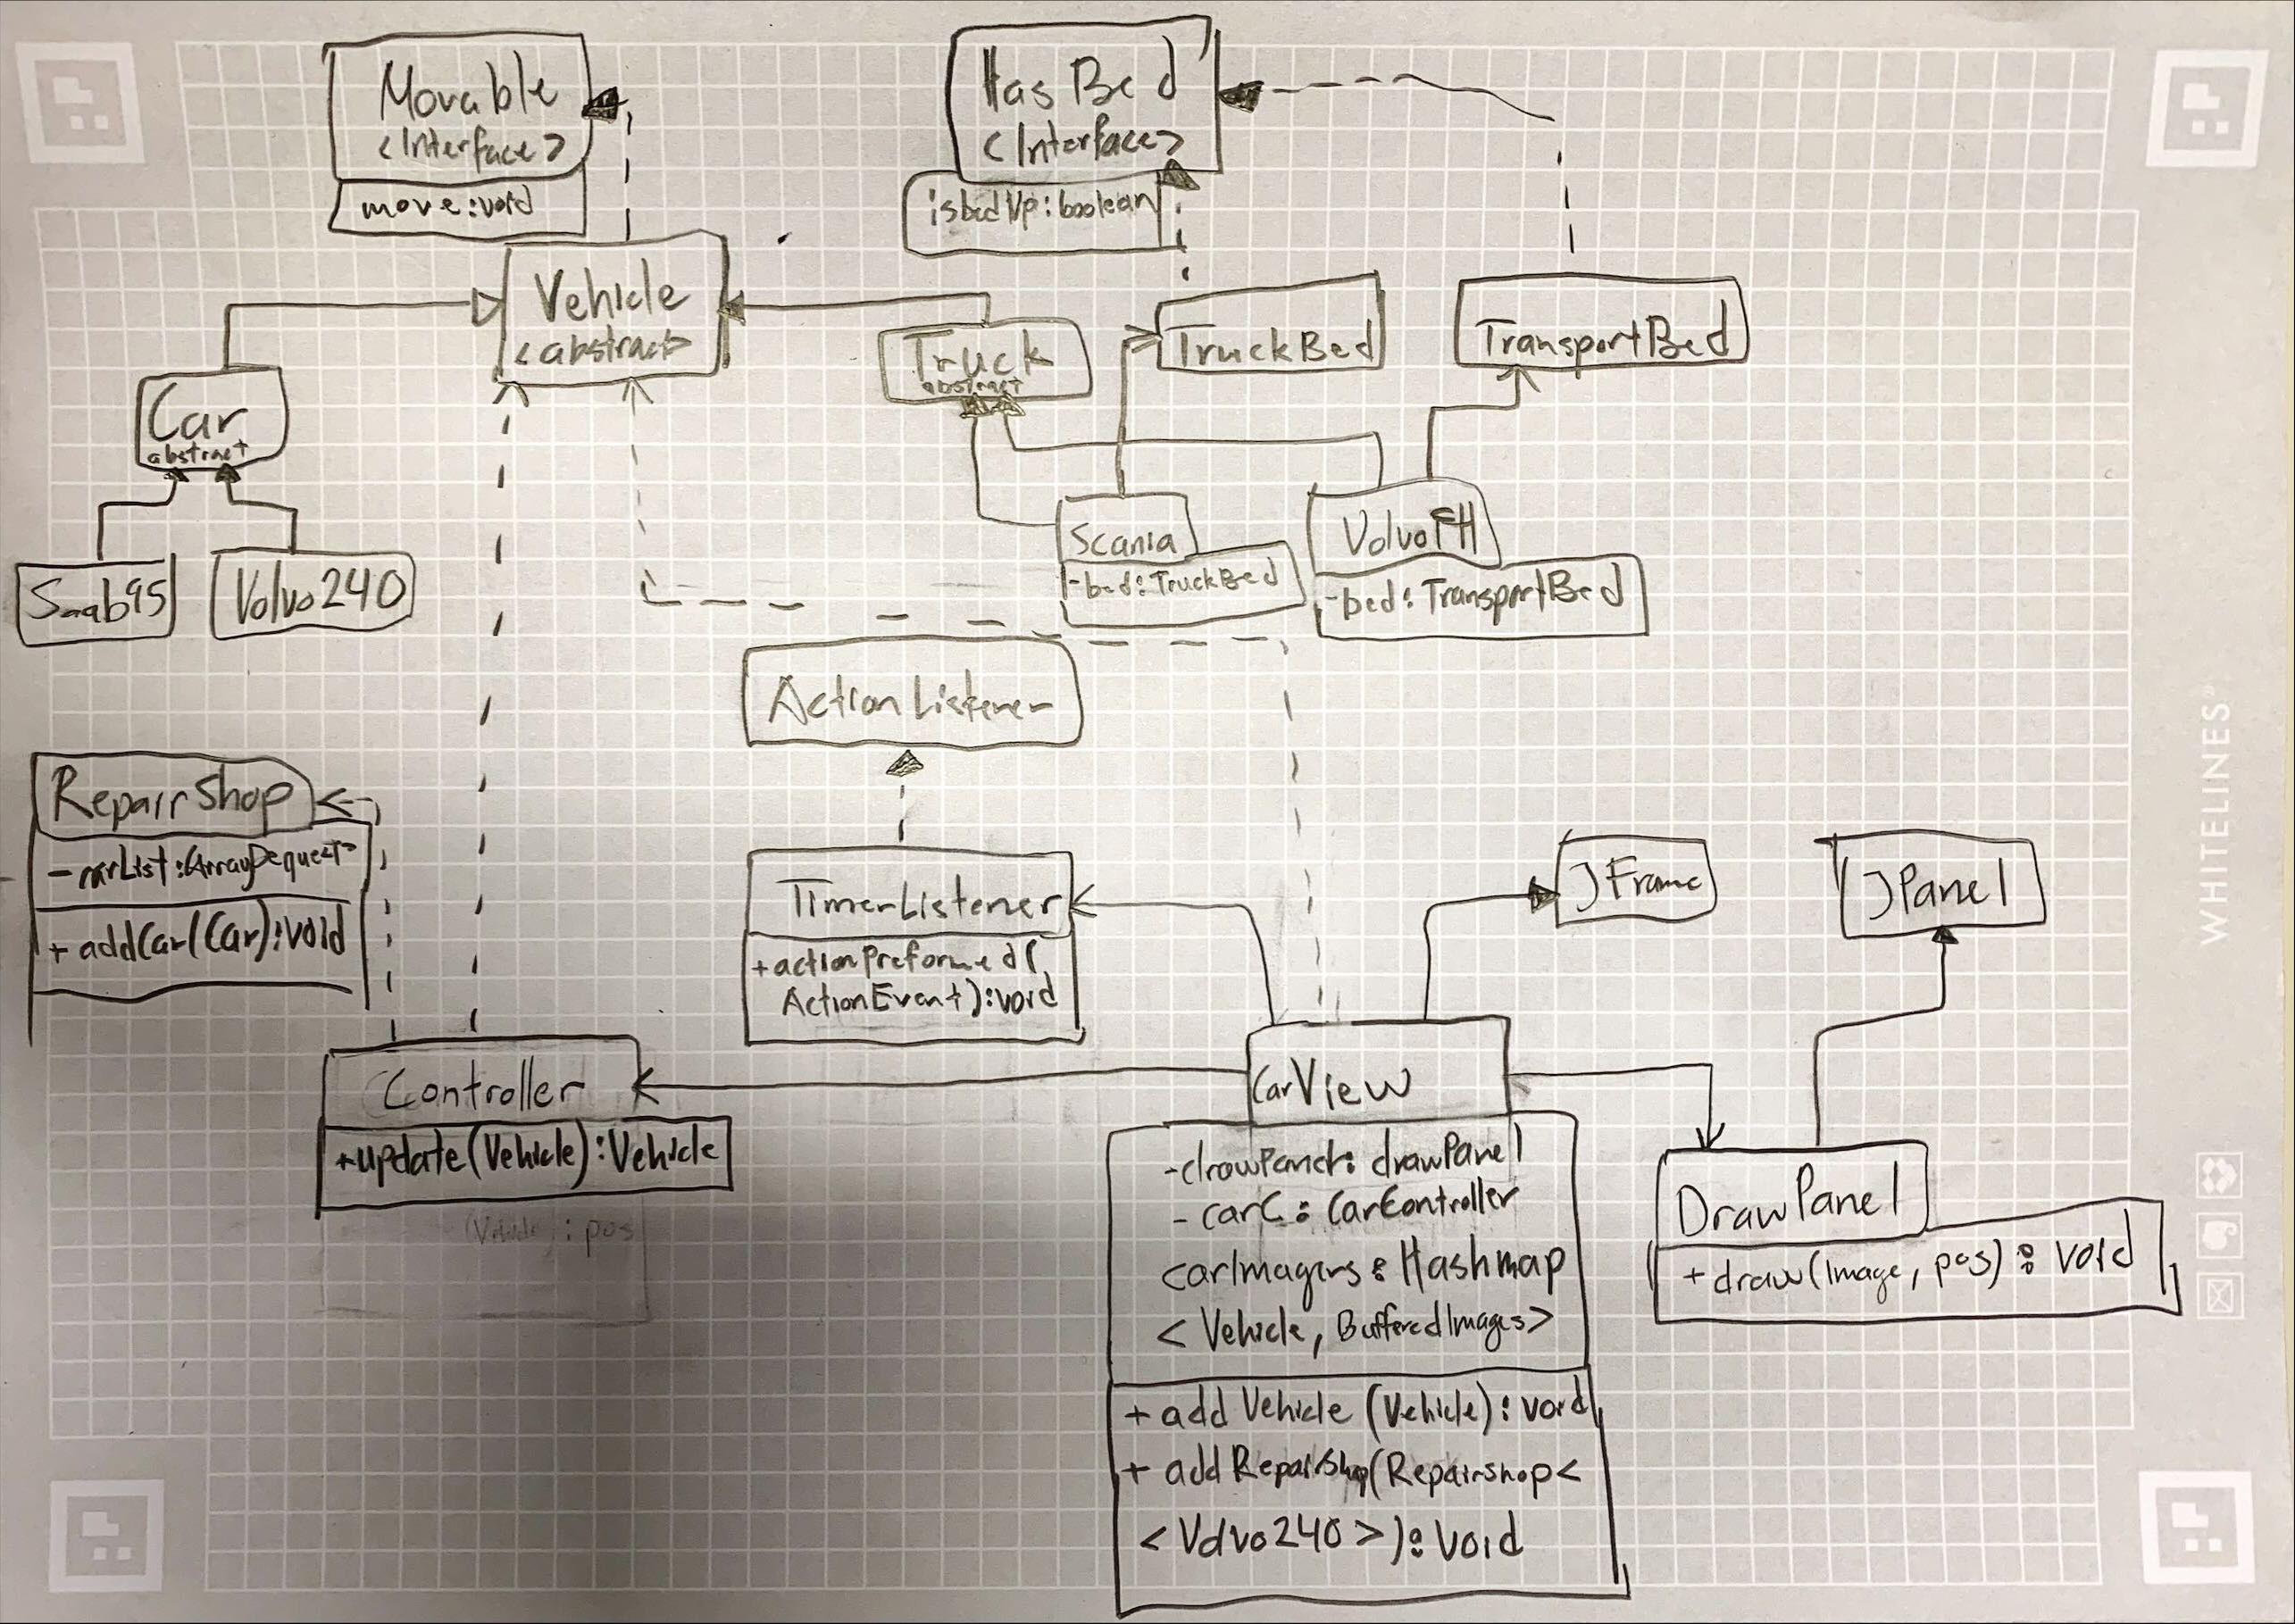 Movable
<Interface>
move:void
HasBed
<Interface>
isbedUp:boolean
Vehicle
<abstract>
Truck
abstract
TruckBed
TransportBed
Car
abstract
Saab95
Volvo240
Scania
-bed:TruckBed
VolvoFH
-bed:TransportBed
ActionListener
RepairShop
+addCar(Car):void
TimerListener
+actionPreformed(
ActionEvent):void
JFrame
JPanel
Controller
+update(Vehicle):Vehicle
(Vehicle):pos
CarView
-drawPanel: drawPanel
-carC: CarController
: Hashmap
<Vehicle, BufferedImages>
+addVehicle(Vehicle):void
+addRepairShop(Repairshop<
<Volvo240>):void
DrawPanel
+draw(Image, pos): void
WHITELINES®